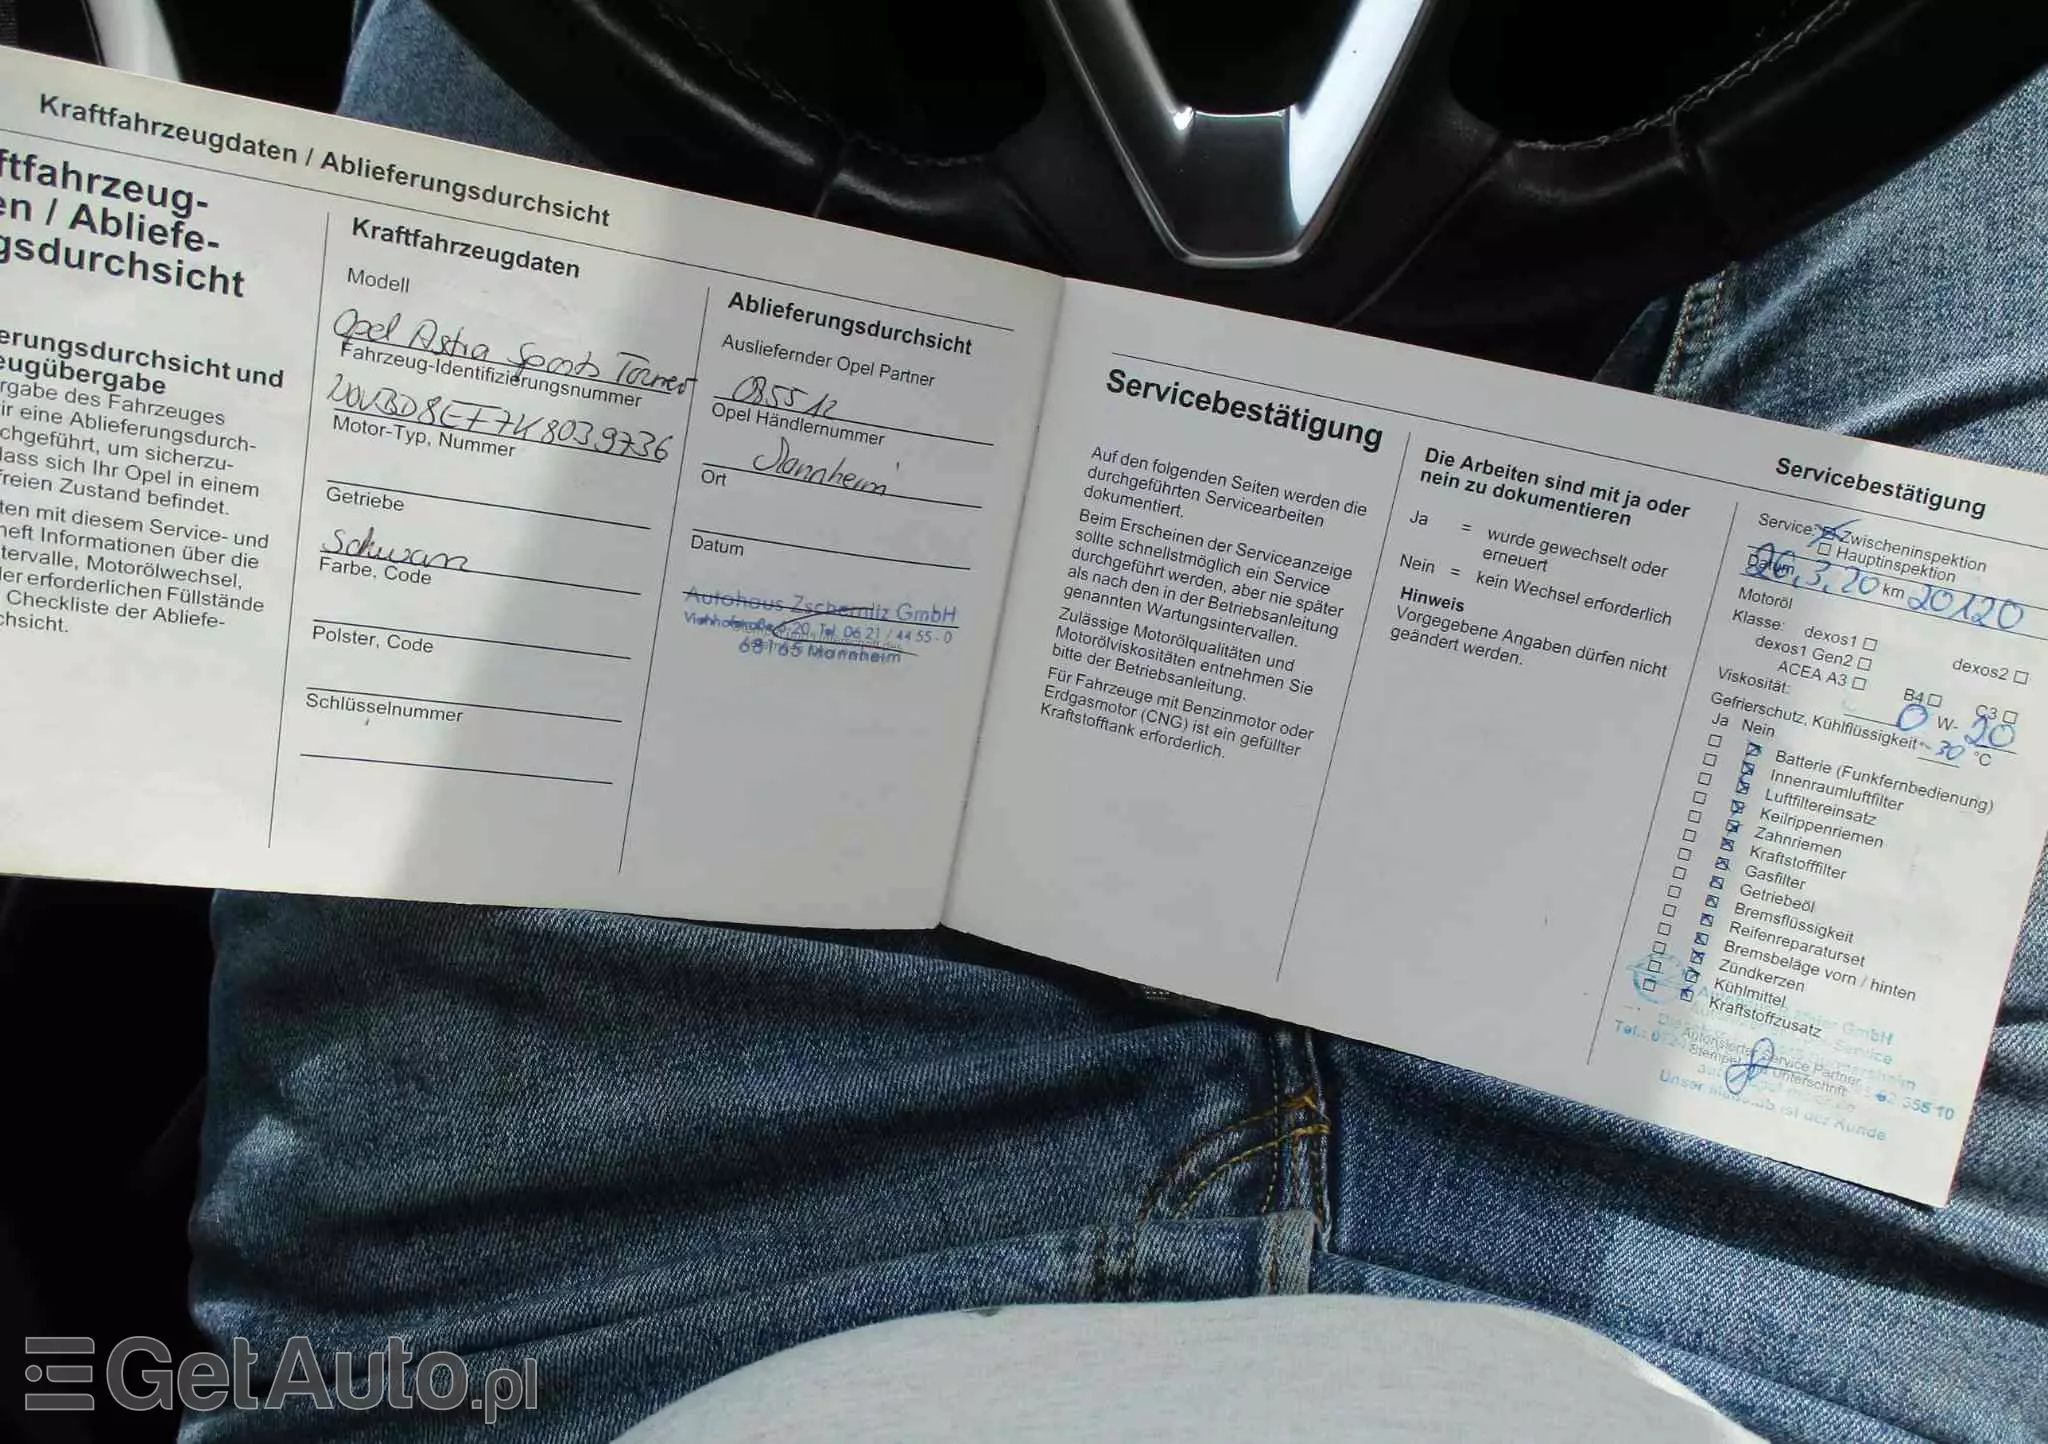 Kraftfahrzeugdaten / Ablieferungsdurchsicht
ftfahrzeug-
en / Abliefe-
gsdurchsicht
erungsdurchsicht und
eugübergabe
rgabe des Fahrzeuges
ir eine Ablieferungsdurch-
chgeführt, um sicherzu-
lass sich Ihr Opel in einem
freien Zustand befindet.
ten mit diesem Service- und
heft Informationen über die
tervalle, Motorölwechsel,
ler erforderlichen Füllstände
Checkliste der Abliefe-
chsicht.
Kraftfahrzeugdaten
Modell
Opel Astra Sports Tourer
Fahrzeug-Identifizierungsnummer
W0VBD8EF7K8039736
Motor-Typ, Nummer
Getriebe
Schwarz
Farbe, Code
Polster, Code
Schlüsselnummer
Ablieferungsdurchsicht
Ausliefernder Opel Partner
Opel Händlernummer
Mannheim
Ort
Datum
Autohaus Zschernitz GmbH
Tel. 06 21 / 44 55 - 0
68165 Mannheim
Servicebestätigung
Auf den folgenden Seiten werden die
durchgeführten Servicearbeiten
dokumentiert.
Beim Erscheinen der Serviceanzeige
sollte schnellstmöglich ein Service
durchgeführt werden, aber nie später
als nach den in der Betriebsanleitung
genannten Wartungsintervallen.
Zulässige Motorölqualitäten und
Motorölviskositäten entnehmen Sie
bitte der Betriebsanleitung.
Für Fahrzeuge mit Benzinmotor oder
Erdgasmotor (CNG) ist ein gefüllter
Kraftstofftank erforderlich.
Die Arbeiten sind mit ja oder
nein zu dokumentieren
Ja = wurde gewechselt oder
erneuert
Nein = kein Wechsel erforderlich
Hinweis
Vorgegebene Angaben dürfen nicht
geändert werden.
Servicebestätigung
Service: Zwischeninspektion
Hauptinspektion
Datum 20.3.20 km 20120
Motoröl
Klasse: dexos1 dexos2
dexos1 Gen2
ACEA A3 B4 C3
Viskosität: 0 W- 20
Gefrierschutz, Kühlflüssigkeit - 30 °C
Ja Nein
Batterie (Funkfernbedienung)
Innenraumluftfilter
Luftfiltereinsatz
Keilrippenriemen
Zahnriemen
Kraftstofffilter
Gasfilter
Getriebeöl
Bremsflüssigkeit
Reifenreparaturset
Bremsbeläge vorn / hinten
Zündkerzen
Kühlmittel
Kraftstoffzusatz
GmbH
Service
Autorisierter Service Partner
Stempel Unterschrift
Unser Maßstab ist der Kunde
GetAuto.pl